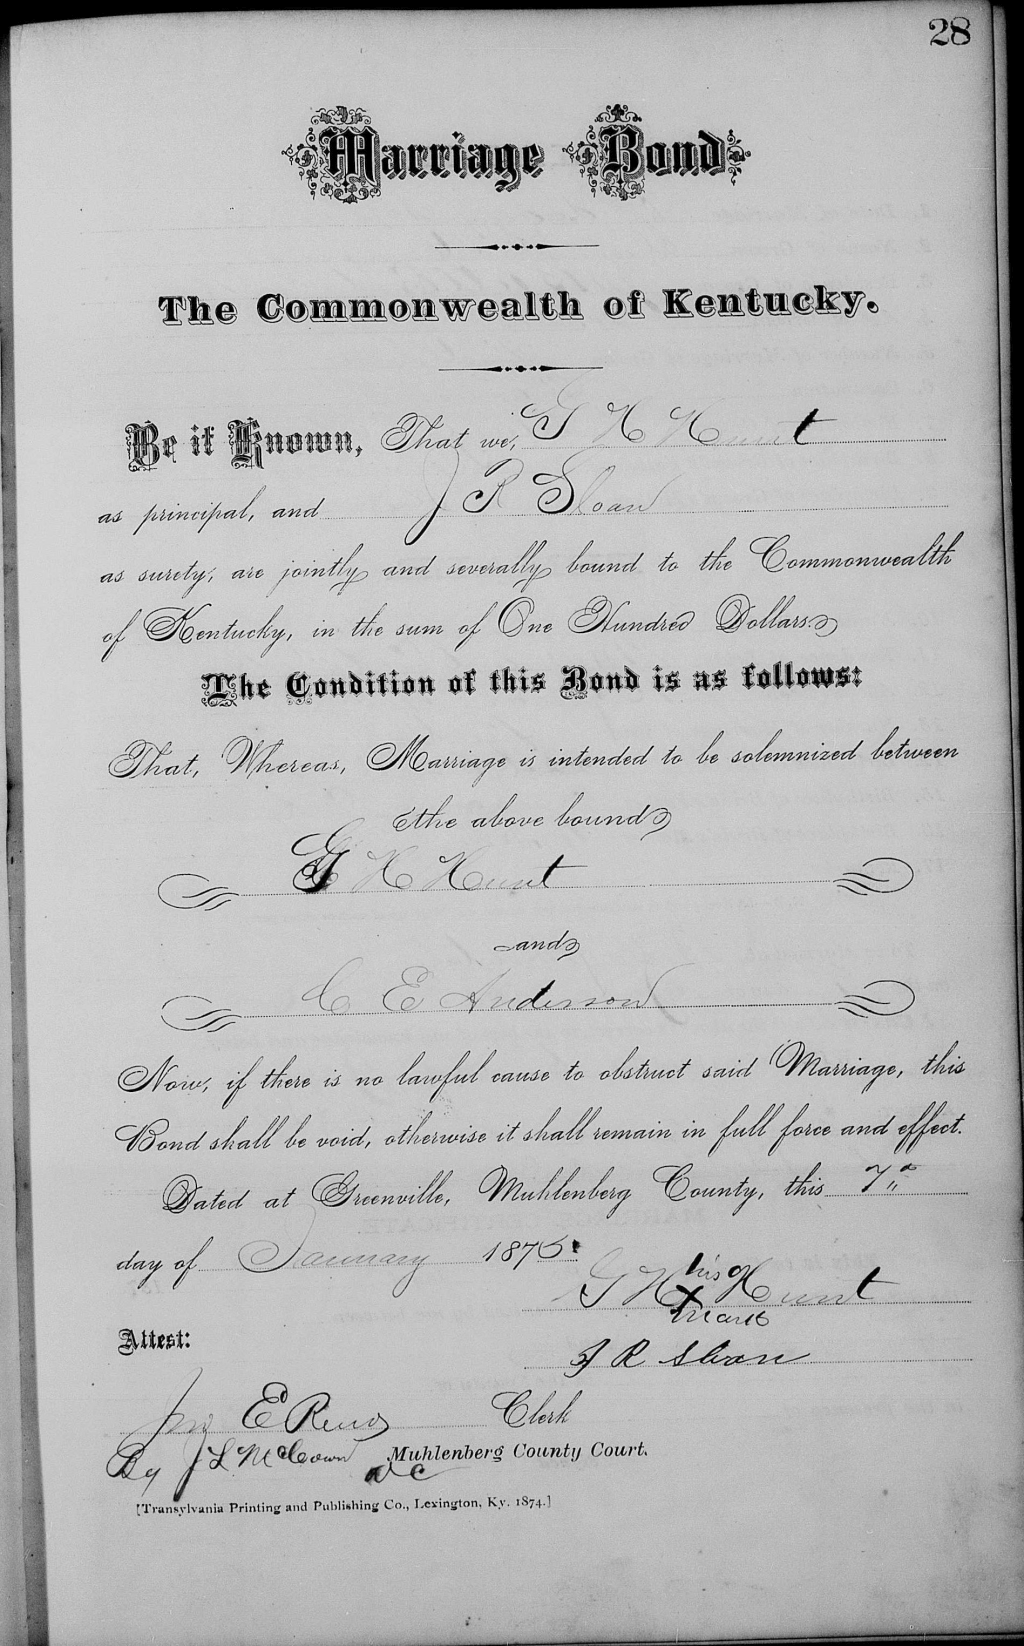 28
Marriage Bond
The Commonwealth of Kentucky.
Be it Known, That we, G H Hunt
as principal, and J R Sloan
as surety, are jointly and severally bound to the Commonwealth
of Kentucky, in the sum of One Hundred Dollars.
The Condition of this Bond is as follows:
That, Whereas, Marriage is intended to be solemnized between
the above bound
G H Hunt
and
C E Anderson
Now, if there is no lawful cause to obstruct said Marriage, this
Bond shall be void, otherwise it shall remain in full force and effect.
Dated at Greenville, Muhlenberg County, this 7"
day of January 1875.
his
G H X Hunt
mark
Attest:
J R Sloan
Jno E Reno Clerk
By J L McCown DC Muhlenberg County Court.
[Transylvania Printing and Publishing Co., Lexington, Ky. 1874.]